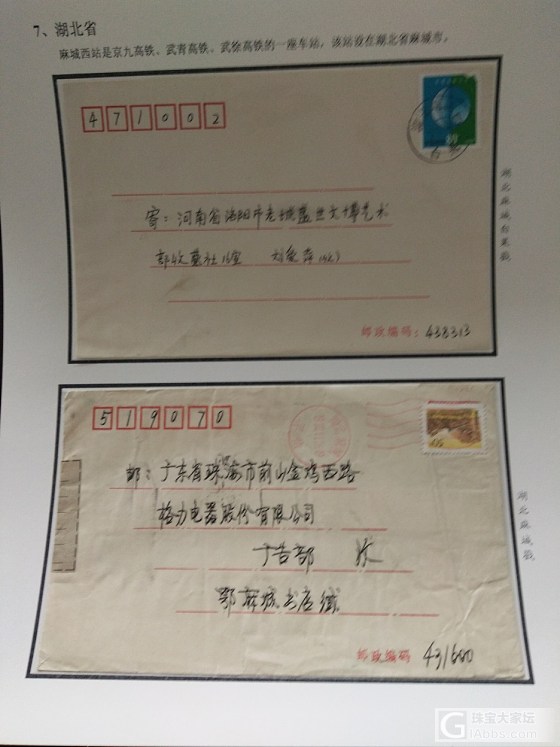 7、湖北省
麻城西站是京九高铁、武青高铁、武徐高铁的一座车站，该站设在湖北省麻城市。
471002
寄：河南省洛阳市老城盛世文博艺术
部收藏社16室 刘
邮政编码：438313
湖北麻城白果戳
519070
邮：广东省珠海市前山金鸡西路
格力电器股份有限公司
广告部 收
鄂麻城书店缄
邮政编码 431600
湖北麻城戳
珠宝大家坛
GIAbbs.com